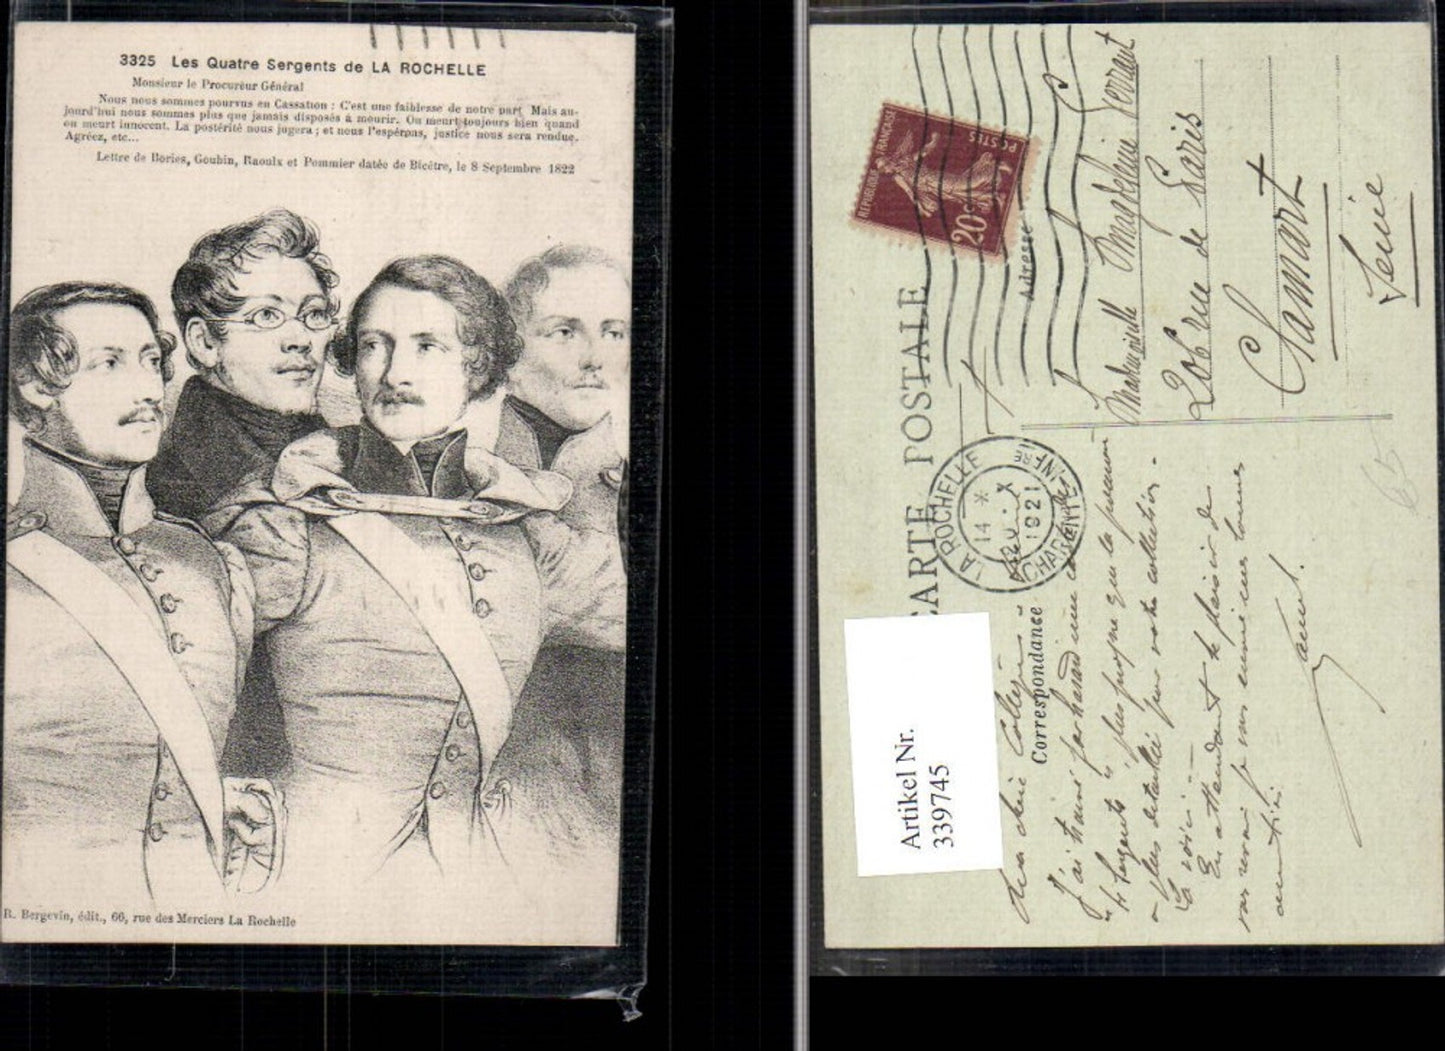 3325 Les Quatre Sergents de LA ROCHELLE
Monsieur le Procureur Général
Nous nous sommes pourvus en Cassation : C'est une faiblesse de notre part. Mais au-
jourd'hui nous sommes plus que jamais disposés à mourir. On meurt toujours bien quand
on meurt innocent. La postérité nous jugera ; et nous l'espérons, justice nous sera rendue.
Agréez, etc...
Lettre de Bories, Goubin, Raoulx et Pommier datée de Bicêtre, le 8 Septembre 1822
R. Bergevin, édit., 66, rue des Merciers La Rochelle
CARTE POSTALE
Correspondance
Adresse
REPUBLIQUE FRANÇAISE
POSTES
20c
LA ROCHELLE
CHARENTE INFRE
14 * X
1921
Mademoiselle Magdeleine Verrant
206 rue de Paris
Clamart
Seine
Ma chère Collègue
J'ai trouvé par hasard une carte des
"4 Sergents" plus propre que la première
plus détaillée pour votre collection -
La voici -
En attendant le plaisir de
vous revoir je vous envoie mes bonnes
amitiés.
Artikel Nr.
339745